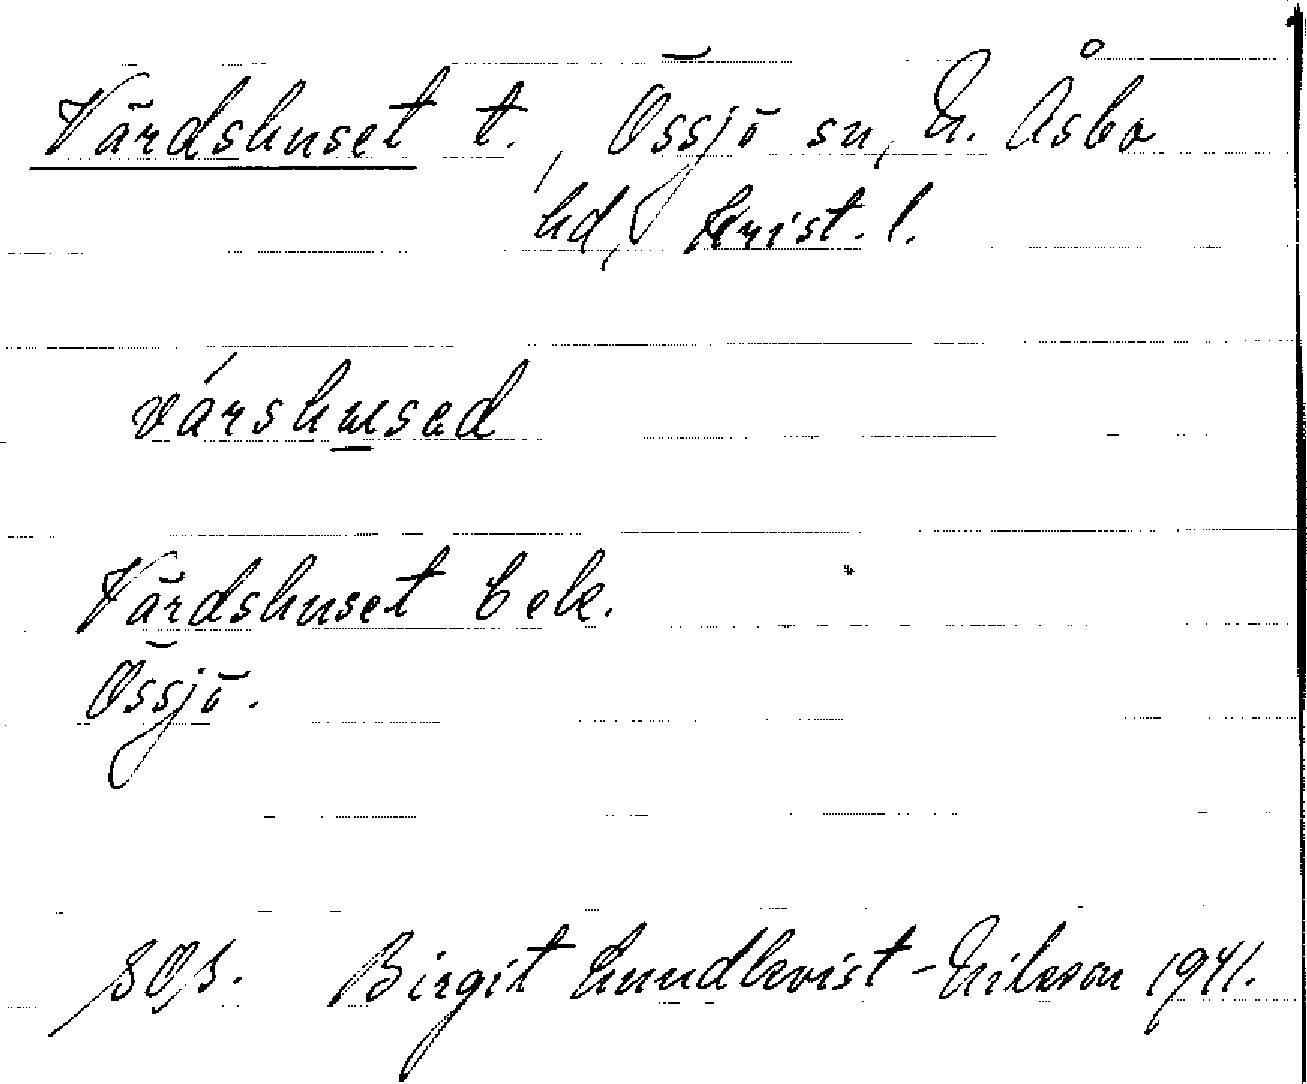 Värdshuset t., Össjö sn, N. Åsbo
hd, Krist. l.
várshu̲sad
Värdshuset bek.
Össjö.
SOS. Birgit Lundkvist-Nilsson 1941.